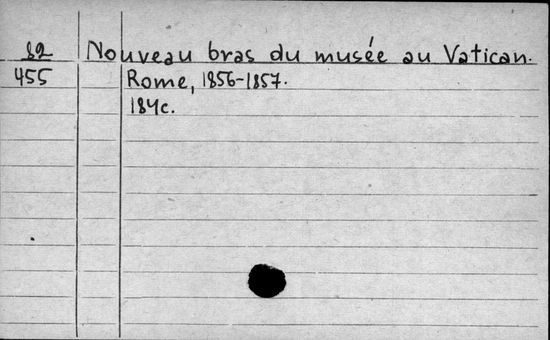 82 Nouveau bras du musée au Vatican.
455 Rome, 1856-1857.
184c.